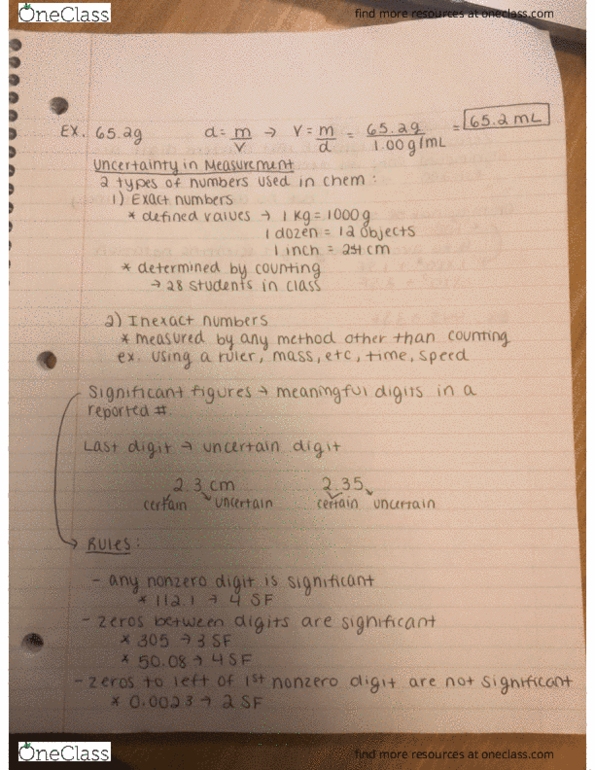 OneClass
find more resources at oneclass.com
EX. 65.2g d = m/V → V = m/d = 65.2g/1.00 g/mL = 65.2 mL
Uncertainty in Measurement
2 types of numbers used in chem:
1) Exact numbers
* defined values → 1 Kg = 1000 g
1 dozen = 12 objects
1 inch = cm
* determined by counting
→ 28 students in class
2) Inexact numbers
* measured by any method other than counting
ex. using a ruler, mass, etc, time, speed
Significant figures → meaningful digits in a
reported #.
Last digit → uncertain digit
2.3 cm 2.35
certain uncertain certain uncertain
→ RULES:
- any nonzero digit is significant
* 112.1 → 4 SF
- zeros between digits are significant
* 305 → 3 SF
* 50.08 → 4 SF
- zeros to left of 1st nonzero digit are not significant
* 0.0023 → 2 SF
OneClass
find more resources at oneclass.com